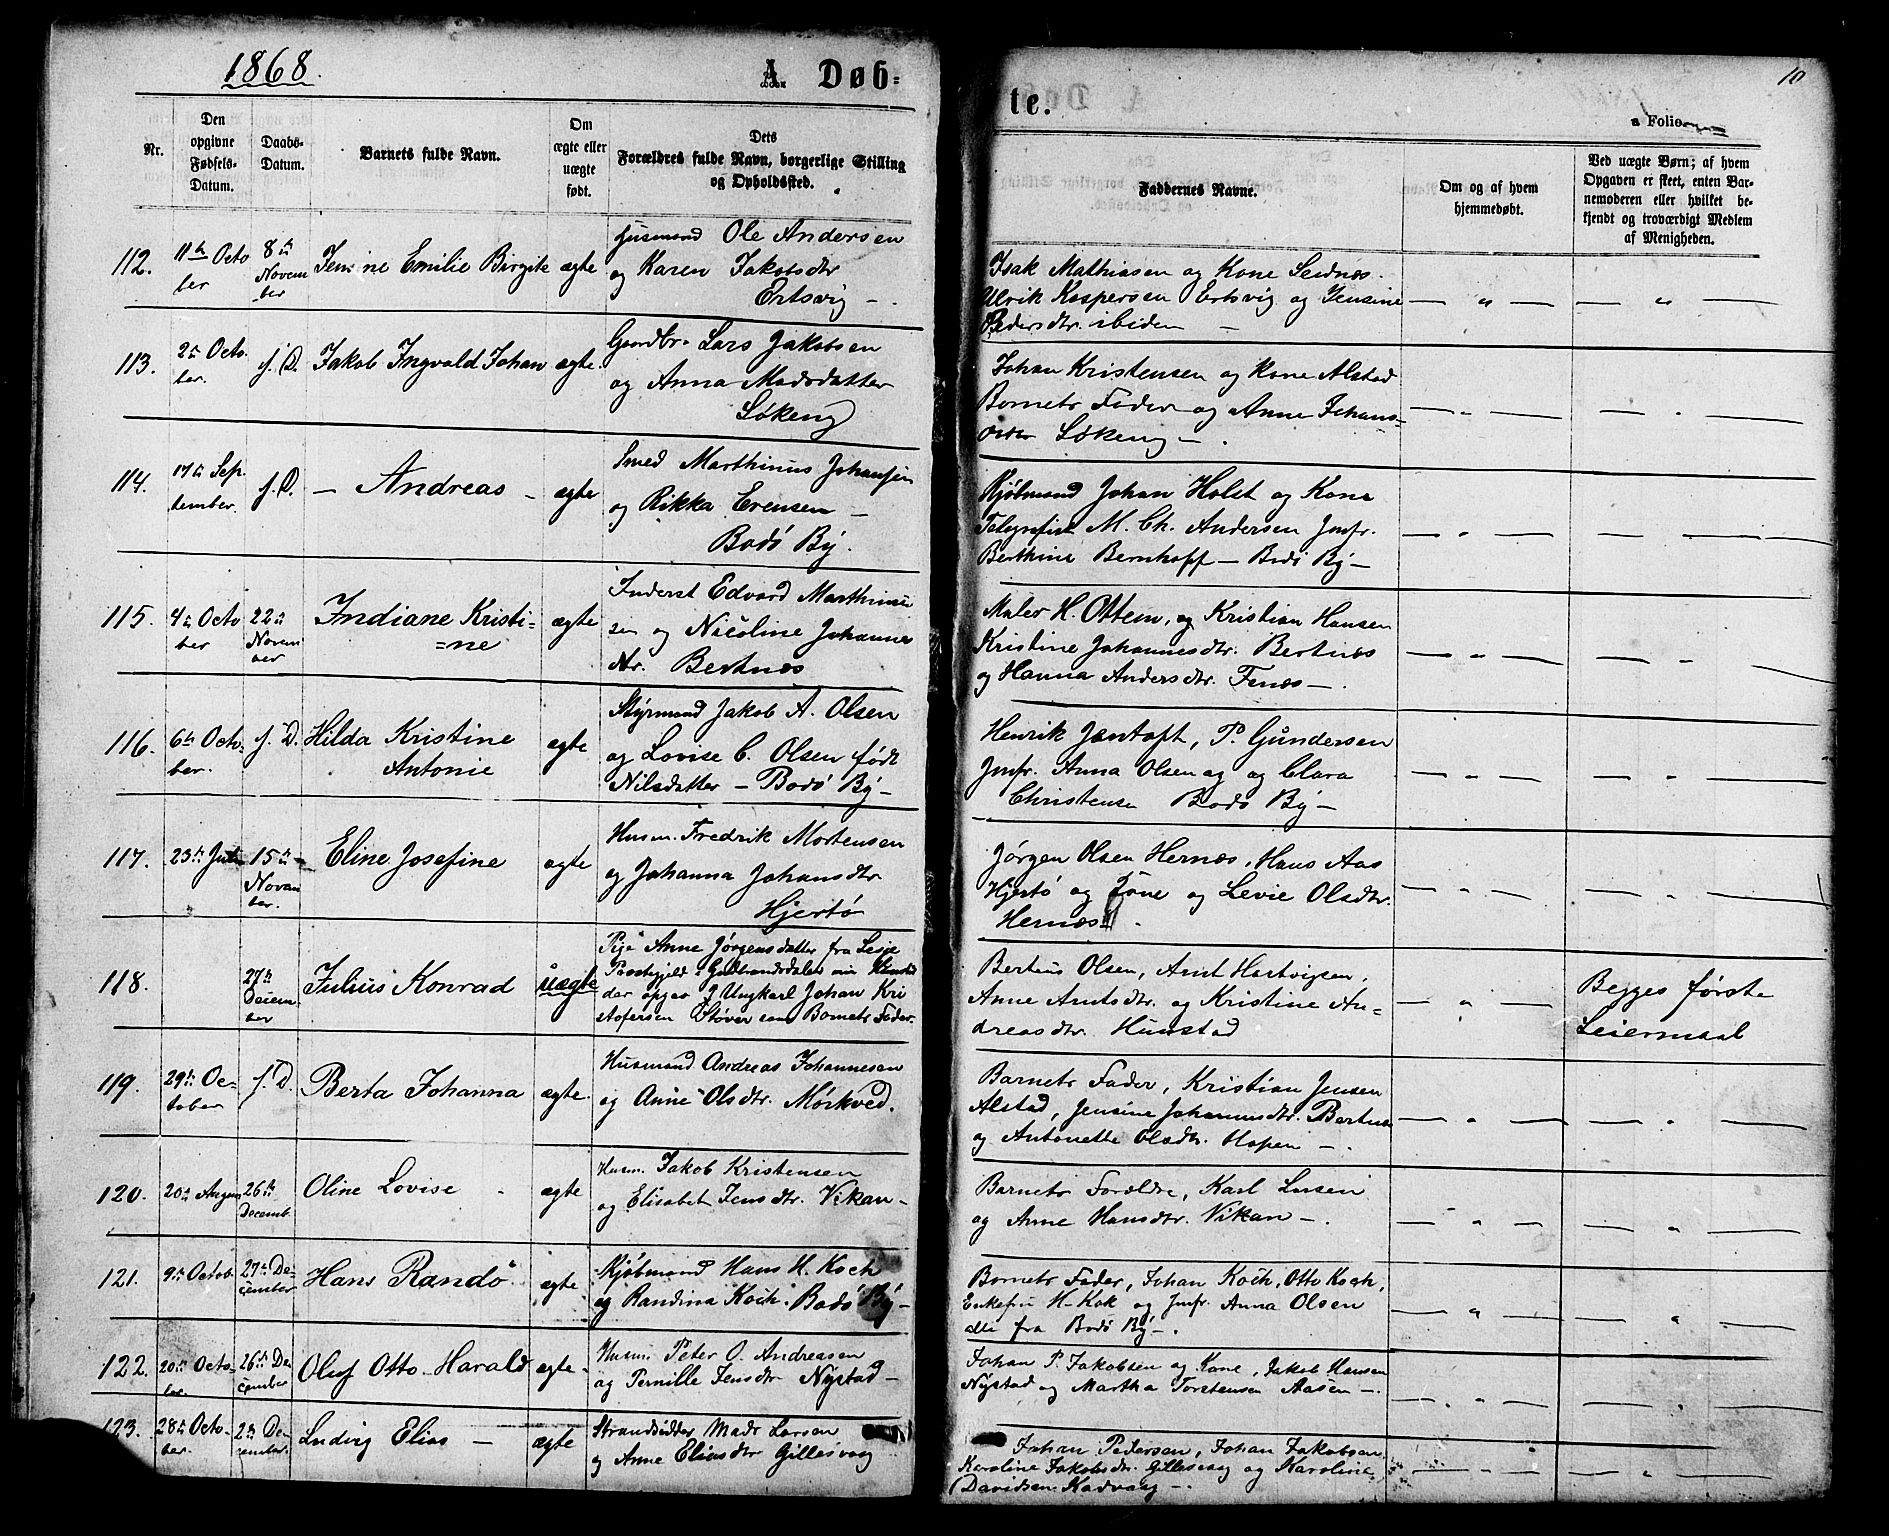 1868.
A. Døb-
te.
10
Folio
Nr.
Den opgivne Fødsels-Datum.
Daabs-Datum.
Barnets fulde Navn.
Om ægte eller uægte født.
Dets Forældres fulde Navn, borgerlige Stilling og Opholdssted.
Faddernes Navne.
Om og af hvem hjemmedøbt.
Ved uægte Børn; af hvem Opgaven er skeet, enten Barnemoderen eller hvilket bekjendt og troværdigt Medlem af Menigheden.
112. 11te Octo ber 8de Novem ber Jensine Emilie Birgite ægte
Husmand Ole Andersen
og Karen Jakobsdtr
Ertsvig -
Isak Mathiasen og Kone Seines.
Ulrik Kaspersen Ertsvig og Jensine
Pedersdtr. ibiden -
113. 2de Octo. ber. f. D. Jakob Ingvald Johan ægte.
Gaardbr. Lars Jakobsen
og Anna Madsdatter
Løkeng
Johan Kristensen og Kone Alstad
Barnets Fader og Anne Johans=
datter Løkeng -.
114. 17de Sep tember. f. D. - Andreas - ægte
Smed Marthinus Johansen
og Rikka Erensen -
Bodø By.
Kjøbmand Johan Holst og Kone
Telegrafist M. Ch. Andersen Jmfr.
Berthine Bernhoff - Bodø By -
115. 4de Octo ber 22de Novem ber Indiane Kristi= =ne ægte
Inderst Edvard Marthinus
sen og Nicoline Johannes
dtr. Bertnes
Maler H. Ottem, og Kristian Hansen
Kristine Johannesdtr. Bertnes
og Hanna Andersdtr. Fenes -.
116. 6te Octo= ber. f. D. Hilda Kristine Antonie ægte
Styrmand Jakob A. Olsen
og Lovise C. Olsen født
Nilsdatter - Bodø By -
Henrik Jentoft, P. Gundersen
Jmfr. Anna Olsen og og Clara
Christensen Bodø By -
117. 23de Juli 15de Novem ber. Eline Josefine ægte
Husm. Fredrik Mortensen
og Johanna Johansdtr
Hjertø
Jørgen Olsen Hernes, Hans Aas
Hjertø og Kone og Levie Olsdtr.
Hernes.
118. 27de Decem ber Julius Konrad uægte
Pige Anne Jørgensdatter fra Lesje
Præstegjeld i Gudbrandsdalen nu Hunstad
der opgav Ungkarl Johan Kri
stofersen Støver som Barnets Fader.
Berteus Olsen, Arnt Hartvigsen,
Anne Arntsdtr. og Kristine An=
dreasdtr. Hunstad
Begges første
Leiermaal
119. 29de Oc= tober f. D. Berta Johanna ægte.
Husmand Andreas Johannesen
og Anne Olsdtr. Mørkved.
Barnets Fader, Kristian Jensen
Alstad, Jensine Johannesdtr. Bertnes
og Antonette Olsdtr. Hopen -.
120. 20de August 26de Decemb. Oline Lovise ægte
Husm. Jakob Kristensen
og Elisabet Jensdtr. Vikan -
Barnets Forældre, Karl Larsen
og Anne Hansdtr. Vikan -.
121. 9de Octob. 27de De= cember Hans Randø ægte
Kjøbmand Hans H. Koch
og Randina Koch. Bodø By -
Barnets Fader, Johan Koch, Otto Koch,
Enkefru H. Kok og Jmfr. Anna Olsen
alle fra Bodø By -.
122. 20de Octo= ber 26de De cember Oluf Otto Harald ægte.
Husm. Peter O. Andreasen
og Pernille Jensdtr Nystad -
Johan P. Jakobsen og Kone, Jakob Hansen
Nystad og Martha Torstensen Aasen -.
123. 28de Octo= ber. 2d De cember. Ludvig Elias - ægte
Strandsidder Mads Larsen
og Anne Eliasdtr Gillesvaag
Johan Pedersen, Johan Jakobsen
Karoline Jakobsdtr. Gillesvaag og Karoline
Davidsen Kadvaag -.